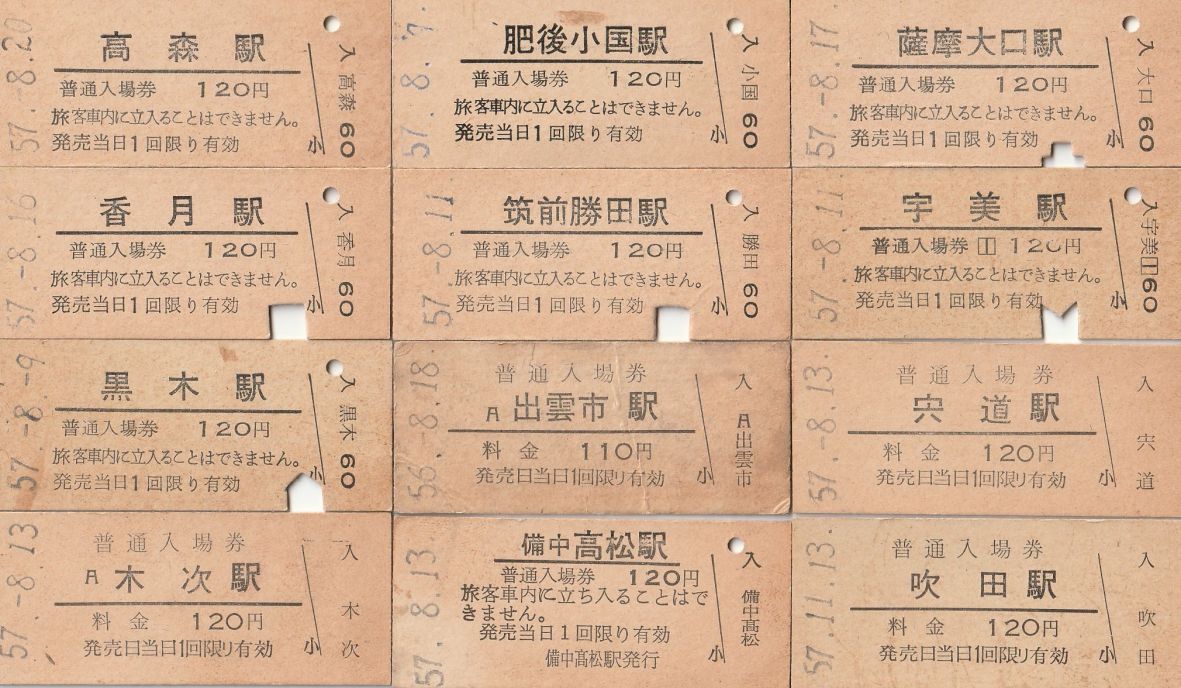 57.-8.20
高森駅
普通入場券 120円
旅客車内に立入ることはできません。
発売当日1回限り有効
小
入 高森 60
57.-8.-7
肥後小国駅
普通入場券 120円
旅客車内に立入ることはできません。
発売当日1回限り有効
小
入 小国 60
57.-8.17
薩摩大口駅
普通入場券 120円
旅客車内に立入ることはできません。
発売当日1回限り有効
小
入 大口 60
57.-8.16
香月駅
普通入場券 120円
旅客車内に立入ることはできません。
発売当日1回限り有効
小
入 香月 60
57.-8.11.
筑前勝田駅
普通入場券 120円
旅客車内に立入ることはできません。
発売当日1回限り有効
小
入 勝田 60
57.-8.11.
宇美駅
普通入場券 120円
旅客車内に立入ることはできません。
発売当日1回限り有効
小
入 宇美 60
57.-8.-9
黒木駅
普通入場券 120円
旅客車内に立入ることはできません。
発売当日1回限り有効
小
入 黒木 60
56.-8.18.
普通入場券
出雲市駅
料金 110円
発売日当日1回限り有効
小
入 出雲市
57.-8.13.
普通入場券
宍道駅
料金 120円
発売日当日1回限り有効
小
入 宍道
57.-8.13
普通入場券
木次駅
料金 120円
発売日当日1回限り有効
小
入 木次
57.8.13.
備中高松駅
普通入場券 120円
旅客車内に立ち入ることはで
きません。
発売当日1回限り有効
備中高松駅発行
小
入 備中高松
57.11.13.
普通入場券
吹田駅
料金 120円
発売日当日1回限り有効
小
入 吹田